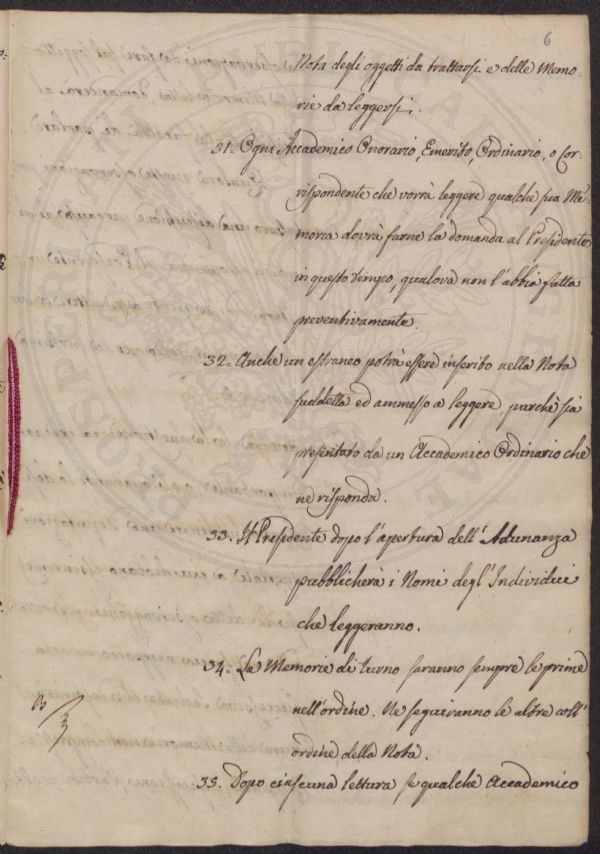 6
Nota degli oggetti da trattarsi e delle Memo-
rie da leggersi.
31= Ogni Accademico Onorario, Emerito, Ordinario, o Cor-
rispondente che vorrà leggere qualche sua Me-
moria dovrà farne la domanda al Presidente
in questo tempo, qualora non l'abbia fatta
preventivamente.
32= Anche un estraneo potrà essere inserito nella Nota
suddetta ed ammesso a leggere purchè sia
presentato da un Accademico Ordinario che
ne risponda.
33. Il Presidente dopo l'apertura dell'Adunanza
pubblicherà i Nomi degl'Individui
che leggeranno.
34= Le Memorie di turno saranno sempre le prime
nell'ordine. Ne seguiranno le altre coll'
ordine della Nota.
35. Dopo ciascuna lettura se qualche Accademico